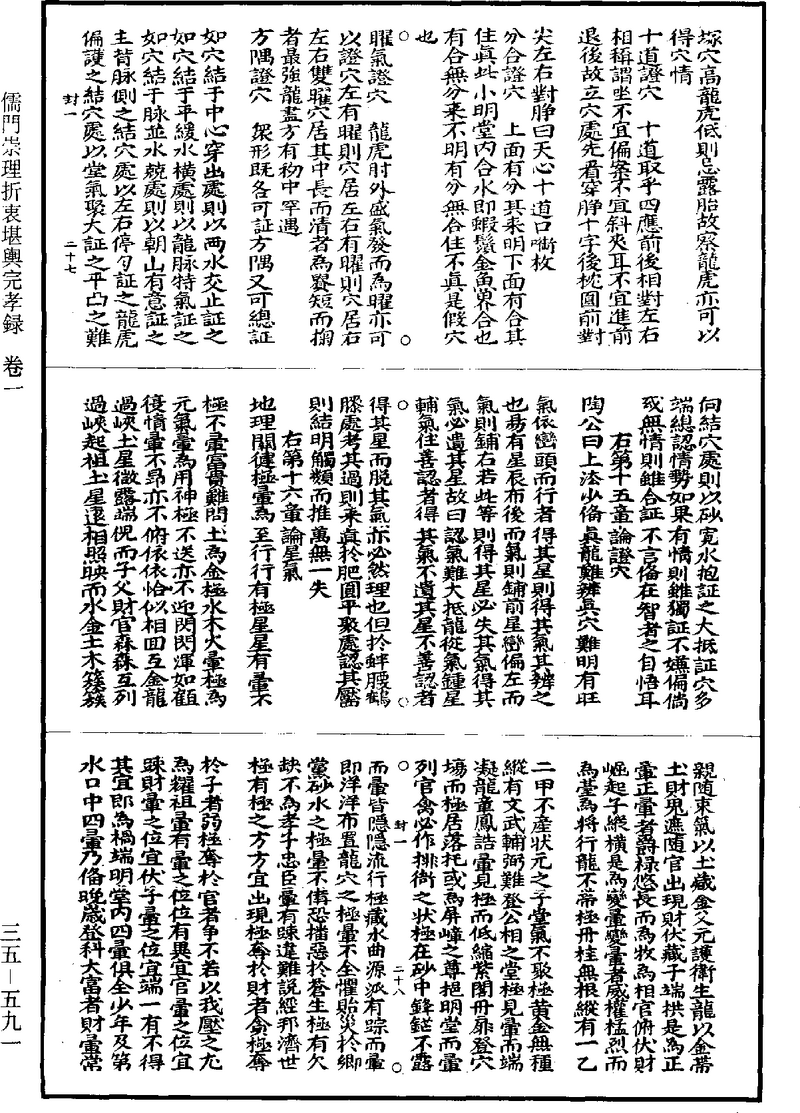 塚穴高龍虎低則忌露胎故察龍虎亦可以
得穴情
十道證穴　十道取乎四應前後相對左右
相稱謂坐不宜偏案不宜斜夾耳不宜進前
退後故立穴處先看穿睜十字後枕圓前對
尖左右對睜曰天心十道口啣枚
分合證穴　上面有分其來明下面有合其
住真此小明堂内合水即蝦鬚金魚界合也
有合無分來不明有分無合住不真是假穴
也
曜氣證穴　龍虎肘外盛氣發而為曜亦可
以證穴左有曜則穴居左右有曜則穴居右
左右雙曜穴居其中長而清者為貴短而搊
者最強龍盡方有初中罕遇
方隅證穴　衆形既各可証方隅又可總証
如穴結于中心穿出處則以两水交止証之
如穴結于平緩水横處則以龍脉特氣証之
如穴結于脉並水競處則以朝山有意証之
主昔脉側之結穴處以左右停匀証之龍虎
偏護之結穴處以堂氣聚大証之平凸之難
封一
二十七
向結穴處則以砂寛水抱証之大抵証穴多
端總認情勢如果有情則雖獨証不嫌偏倘
或無情則雖合証不言備在智者之自悟耳
右第十五章論證穴
陶公曰上法少偹真龍難辨真穴難明有旺
氣依巒頭而行者得其星則得其氣其辨之
也易有星辰布後而氣則鋪前星巒偏左而
氣則鋪右若此等則得其星必失其氣得其
氣必遺其星故曰認氣難大抵龍從氣鍾星
輔氣住善認者得其氣不遺其星不善認者
得其星而脱其氣亦必然理也但於蜂腰鶴
膝處考其過則來真於肥圓平聚處認其壓
則結明觸類而推萬無一失
右第十六章論星氣
地理関徤極暈為至行行有極星星有暈不
極不暈富貴難問土為金極水木火暈極為
元氣暈為用神極不送亦不迎閃閃渾如顧
復情暈不昂亦不俯依依恰似相回互金龍
過峽土星微露端倪而子父財官森森互列
過峽起祖土星遠相照映而水金土木簇簇
親随東氣以土藏金父元護衛生龍以金帯
土財児遮随官出現財伏藏子端拱是為正
暈正暈者爵禄悠長而為牧為相官俯伏財
崛起子縱横是為變暈變暈者威權猛烈而
為臺為將行龍不帯極丹桂無根縱有一乙
二甲不産状元之子堂氣不取極黄金無種
縱有文武輔弼難登公相之堂極見暈而端
凝龍章鳳誥暈見極而低縮紫閣丹扉登穴
塲而極居落托或為屏嶂之尊挹明堂而暈
列官禽必作排衙之状極在砂中鋒鋩不露
而暈皆隱隱流行極藏水曲源派有踪而暈
即洋洋布置龍穴之極暈不全懼貽災於鄉
黨砂水之極暈不偹恐播惡於蒼生極有欠
缺不為孝子忠臣暈有踈違難説經邦濟世
極有極之方方宜出現極奪於財者貪極奪
於子者弱極奪於官者争不若以我壓之尤
為耀祖暈有暈之位位有異宜官暈之位宜
踈財暈之位宜伏子暈之位宜端一有不得
其宜即為禍端明堂内四暈俱全少年及第
水口中四暈乃偹晚歲登科大富者財暈常
封一
二十八
儒門崇理折衷堪輿完孝録　卷一
三五－五九一